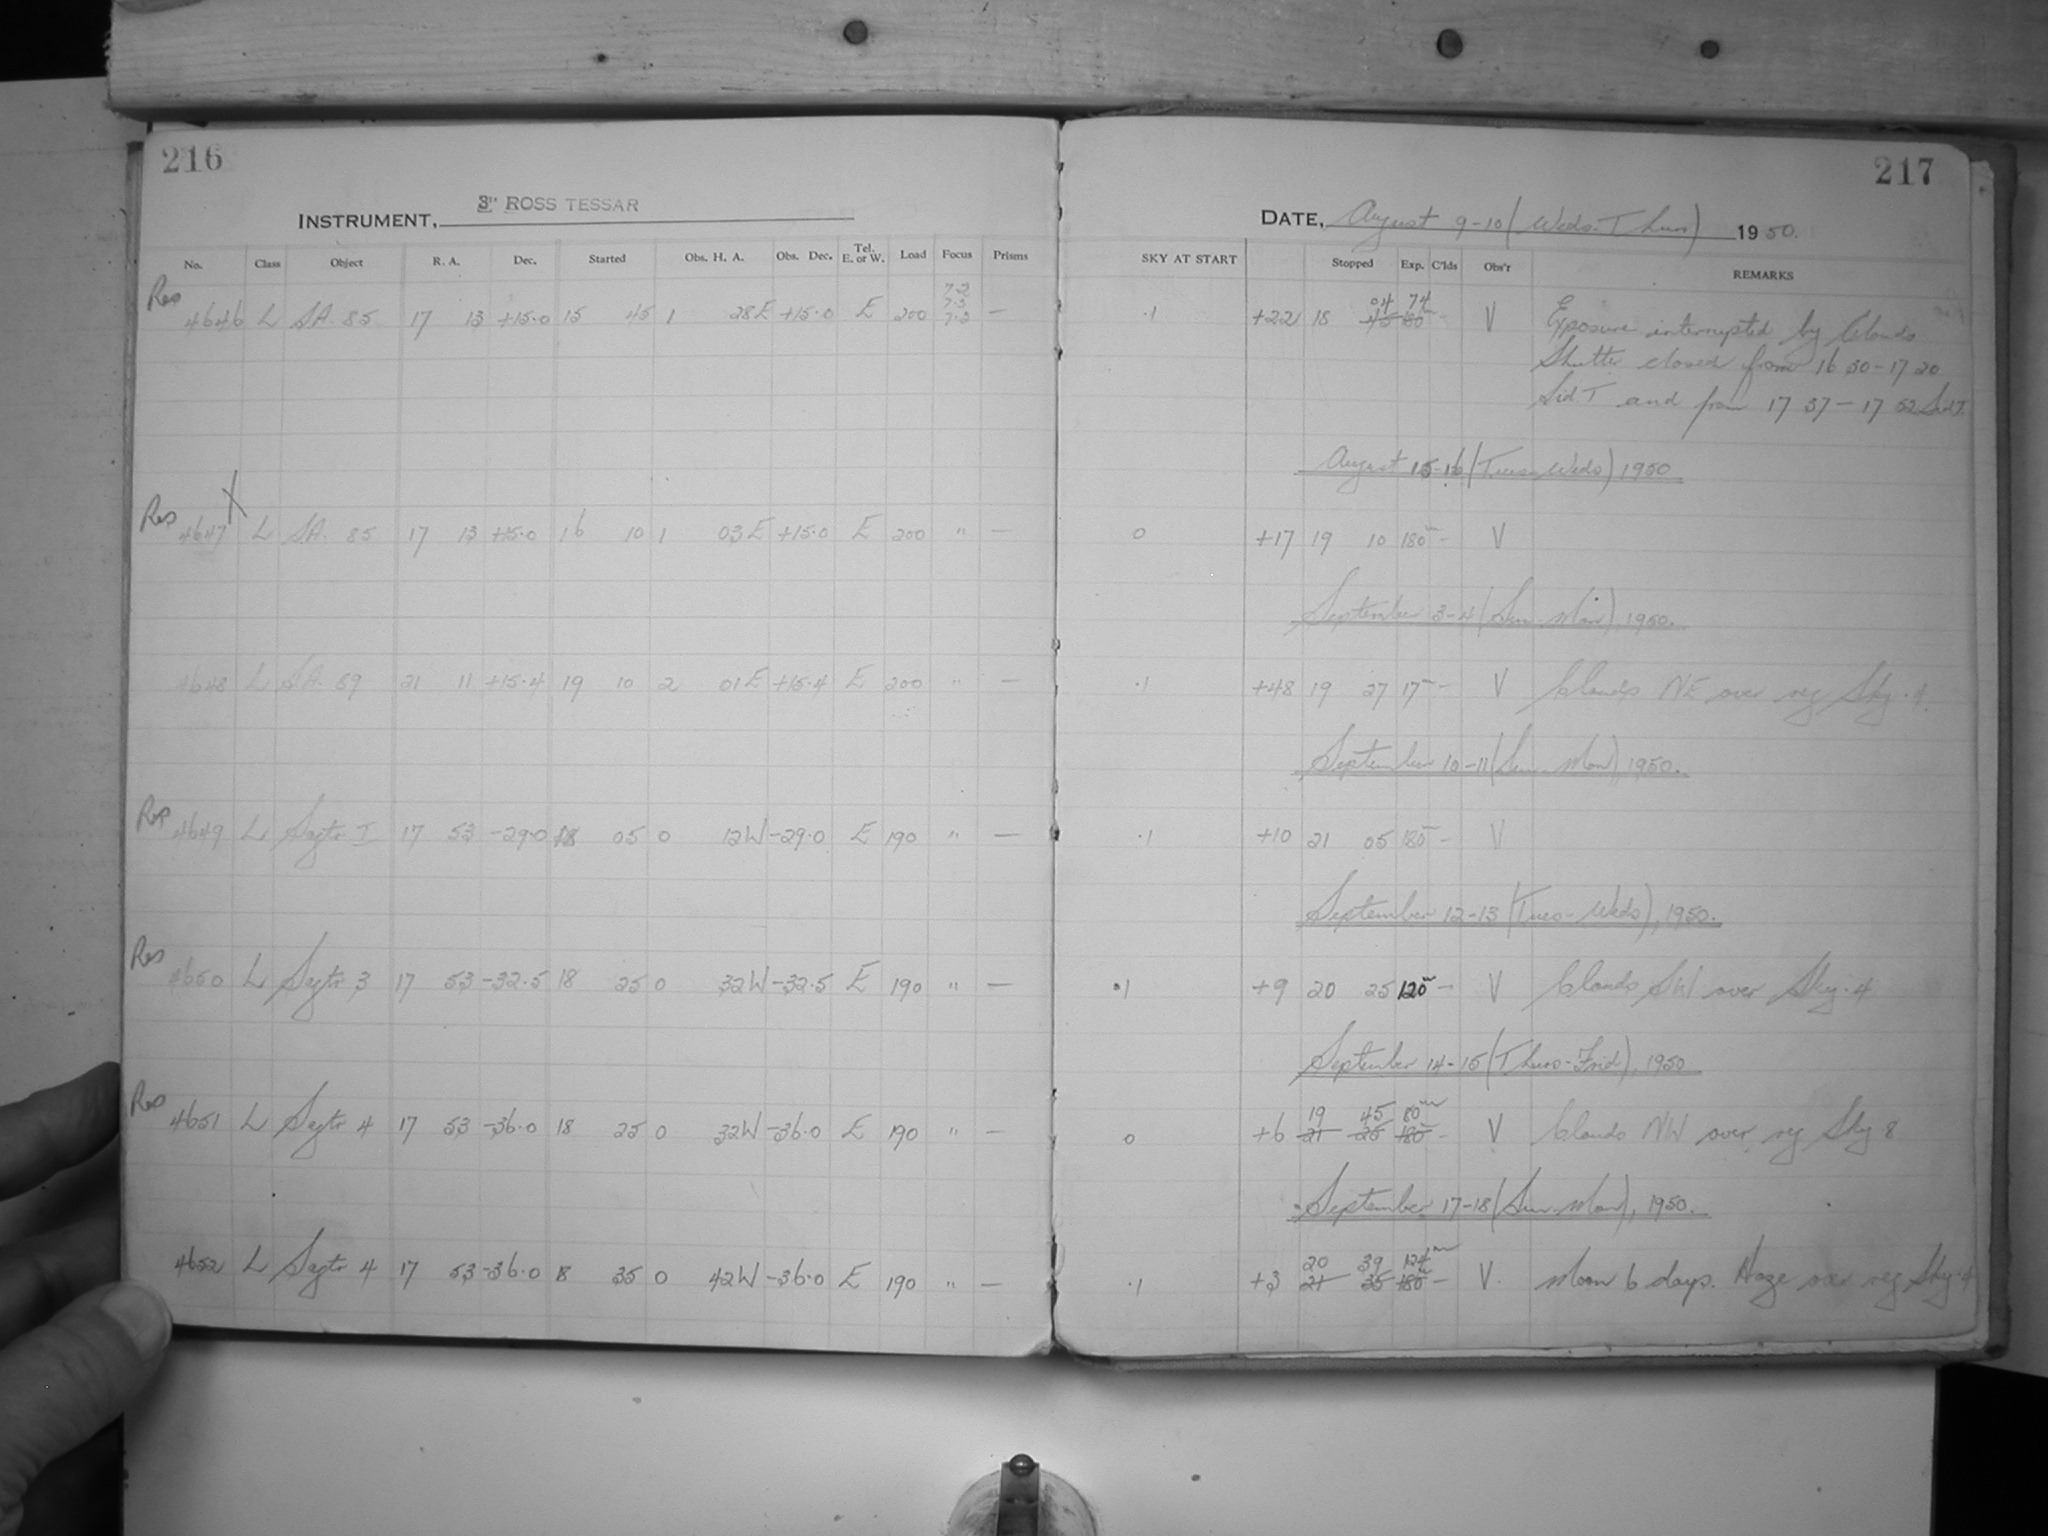 216
INSTRUMENT, 3" ROSS TESSAR
No. Class Object R. A. Dec. Started Obs. H. A. Obs. Dec. Tel. E. or W. Load Focus Prisms
7.2
7.3
Res 4646 L SA. 85 17 13 +15.0 15 45 1 28E +15.0 E 200 7.3 —
Res 4647 X L SA. 85 17 13 +15.0 16 10 1 03E +15.0 E 200 " —
4648 L SA. 69 21 11 +15.4 19 10 2 01E +15.4 E 200 " —
Res 4649 L Sagtr I 17 53 -29.0 18 05 0 12W -29.0 E 190 " —
Res 4650 L Sagtr 3 17 53 -32.5 18 25 0 32W -32.5 E 190 " —
Res 4651 L Sagtr 4 17 53 -36.0 18 25 0 32W -36.0 E 190 " —
4652 L Sagtr 4 17 53 -36.0 18 35 0 42W -36.0 E 190 " —
217
DATE, August 9-10 (Weds-Thurs) 1950.
SKY AT START Stopped Exp. C'lds Obs'r REMARKS
04 74m
.1 +22 18 45 180 - V Exposure interrupted by Clouds
Shutter closed from 16 50 - 17 20
Sid T and from 17 37 - 17 52 Sid T.
August 15-16 (Tues-Weds) 1950
0 +17 19 10 180m - V
September 3-4 (Sun-Mon), 1950.
.1 +48 19 27 17m - V Clouds NE over reg Sky .4.
September 10-11 (Sun-Mon), 1950.
.1 +10 21 05 180m - V
September 12-13 (Tues-Weds), 1950.
.1 +9 20 25 120m - V Clouds SW over Sky .4
September 14-15 (Thurs-Frid), 1950
19 45 80m
0 +6 21 25 180m - V Clouds NW over reg Sky 8
September 17-18 (Sun-Mon), 1950.
20 39 124m
.1 +3 21 35 180m - V. Moon 6 days. Haze over reg Sky .4